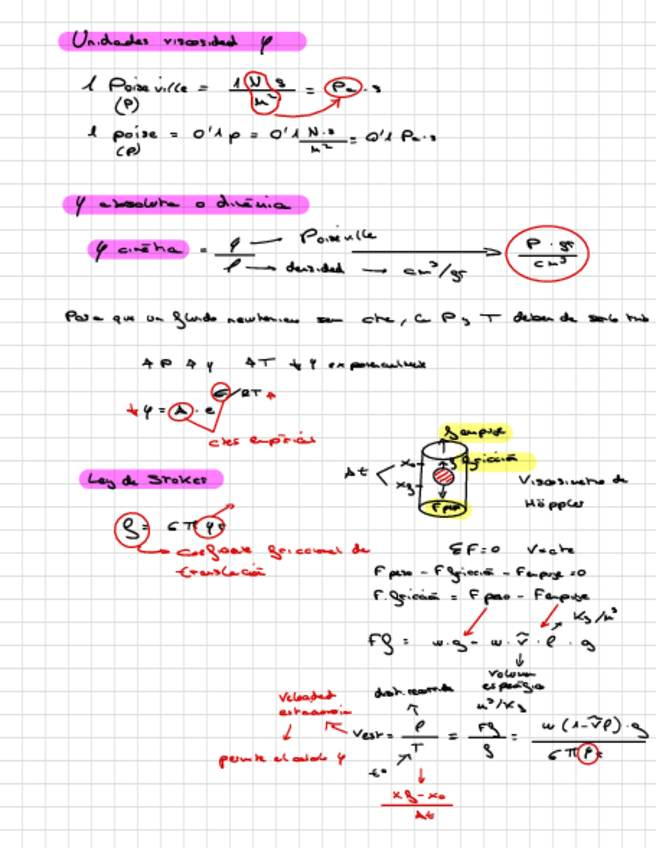 Unidades viscosidad φ
1 Poiseville = 1 N s / m² = Pa · s
(P)
1 poise = 0'1 p = 0'1 N·s / m² = 0'1 Pa·s
(P)
φ absoluta o dinámica
φ cinética = φ / ρ
Poiseville
densidad → cm³/gr
P · gr / cm³
Para que un fluido newtoniano sea cte, la P y T deben de serlo
↑ P ↑ φ ↑T ↓ φ exponencialmente
↓ φ = A · e^(E/RT)
ctes empíricas
Ley de Stokes
f = 6 π φ r
coeficiente friccional de
translación
F empuje
F fricción
Δt < x₀ xf
F peso
Viscosímetro de
Höppler
ΣF=0 V=cte
F peso - F fricción - F empuje = 0
F. fricción = F peso - F empuje
Kg/m³
Ff = w·g - w·ṽ·ρ·g
volumen
específico
m³/Kg
dist. recorrida
Velocidad
estacionaria
permite el cálculo φ
Vest = ρ / T = Ff / f = w(1-ṽρ)·g / 6π
tº
xf - x₀ / Δt